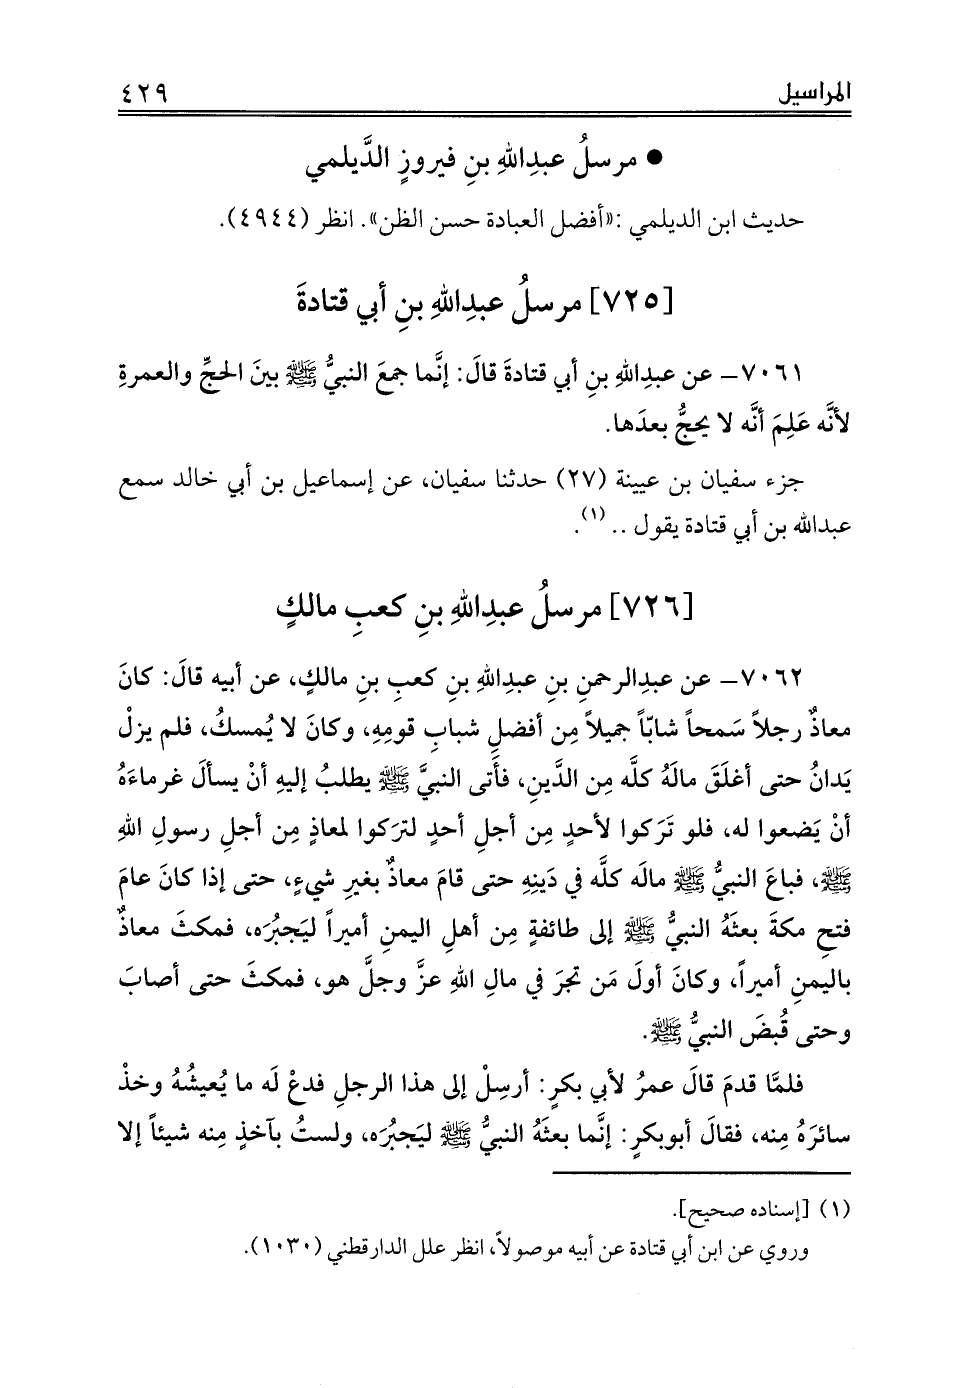 المراسيل ٤٢٩
● مرسلُ عبدِاللهِ بنِ فيروزٍ الدَّيلمي
حديث ابن الديلمي :«أفضل العبادة حسن الظن». انظر (٤٩٤٤).
[٧٢٥] مرسلُ عبدِاللهِ بنِ أبي قتادةَ
٧٠٦١- عن عبدِاللهِ بنِ أبي قتادةَ قالَ: إنَّما جمعَ النبيُّ ﷺ بينَ الحجِّ والعمرةِ
لأنَّه عَلِمَ أنَّه لا يحجُّ بعدَها.
جزء سفيان بن عيينة (٢٧) حدثنا سفيان، عن إسماعيل بن أبي خالد سمع
عبدالله بن أبي قتادة يقول .. (١).
[٧٢٦] مرسلُ عبدِاللهِ بنِ كعبِ مالكٍ
٧٠٦٢- عن عبدِالرحمنِ بنِ عبدِاللهِ بنِ كعبِ بنِ مالكٍ، عن أبيه قالَ: كانَ
معاذٌ رجلاً سَمحاً شابّاً جميلاً مِن أفضلِ شبابِ قومِهِ، وكانَ لا يُمسكُ، فلم يزلْ
يَدانُ حتى أغلَقَ مالَهُ كلَّه مِن الدَّينِ، فأَتى النبيَّ ﷺ يطلبُ إليهِ أنْ يسألَ غرماءَهُ
أنْ يَضعوا له، فلو تَرَكوا لأحدٍ مِن أجلِ أحدٍ لتركوا لمعاذٍ مِن أجلِ رسولِ اللهِ
ﷺ، فباعَ النبيُّ ﷺ مالَه كلَّه في دَينِهِ حتى قامَ معاذٌ بغيرِ شيءٍ، حتى إذا كانَ عامَ
فتحِ مكةَ بعثَهُ النبيُّ ﷺ إلى طائفةٍ مِن أهلِ اليمنِ أميراً ليَجبُرَه، فمكثَ معاذٌ
باليمنِ أميراً، وكانَ أولَ مَن تجَرَ في مالِ اللهِ عزَّ وجلَّ هو، فمكثَ حتى أصابَ
وحتى قُبضَ النبيُّ ﷺ.
فلمَّا قدمَ قالَ عمرُ لأبي بكرٍ: أرسِلْ إلى هذا الرجلِ فدعْ لَه ما يُعيشُهُ وخذْ
سائرَهُ مِنه، فقالَ أبوبكرٍ: إنَّما بعثَهُ النبيُّ ﷺ ليَجبُرَه، ولستُ بآخذٍ مِنه شيئاً إلا
(١) [إسناده صحيح].
وروي عن ابن أبي قتادة عن أبيه موصولاً، انظر علل الدارقطني (١٠٣٠).